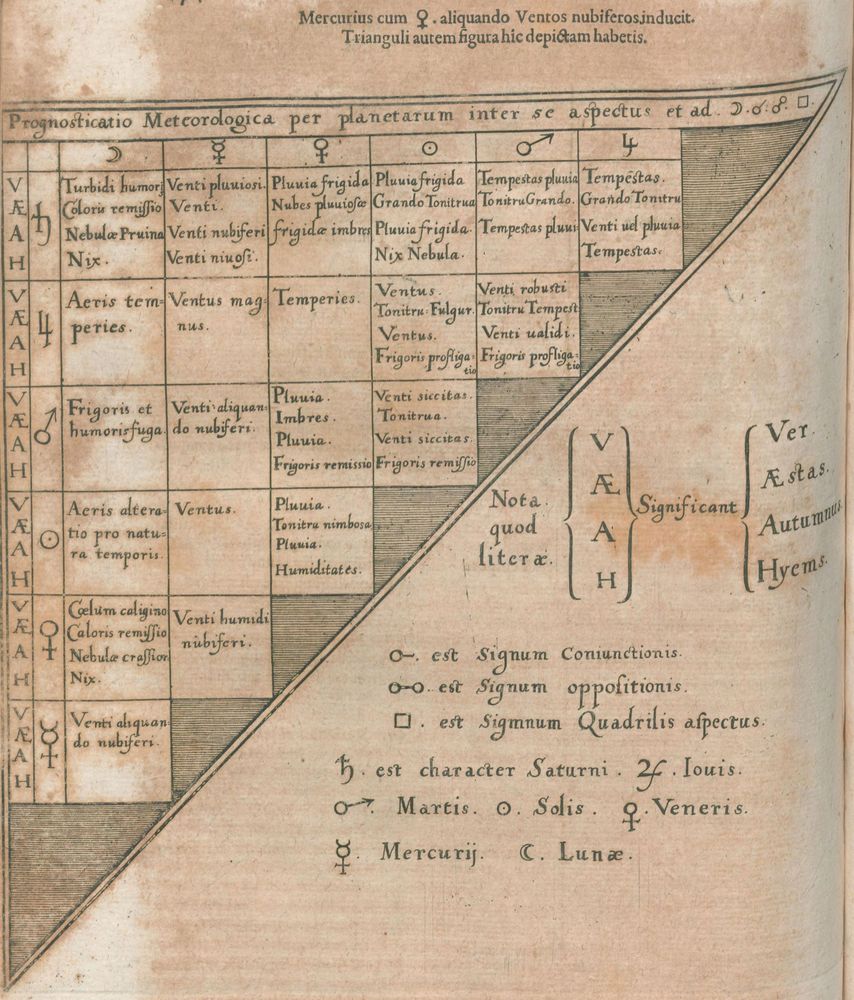 Mercurius cum ♀. aliquando Ventos nubiferos inducit.
Trianguli autem figura hîc depictam habetis.
Prognosticatio Meteorologica per planetarum inter se aspectus et ad ☽.☌.☍.□.
☽ ☿ ♀ ☉ ♂ ♃
V
Æ
A
H
♄
Turbidi humores
Coloris remissio
Nebulæ Pruina
Nix.
Venti pluuiosi.
Venti.
Venti nubiferi
Venti niuosi.
Pluuia frigida
Nubes pluuiosæ
frigidæ imbres
Pluuia frigida
Grando Tonitrua
Pluuia frigida.
Nix Nebula.
Tempestas pluuia
Tonitru Grando.
Tempestas pluui
Tempestas.
Grando Tonitru
Venti uel pluuia
Tempestas.
V
Æ
A
H
♃
Aeris tem-
peries.
Ventus mag-
nus.
Temperies.
Ventus.
Tonitru Fulgur.
Ventus.
Frigoris profliga-
tio
Venti robusti
Tonitru Tempest
Venti ualidi.
Frigoris profliga-
tio
V
Æ
A
H
♂
Frigoris et
humoris fuga.
Venti aliquan-
do nubiferi.
Pluuia.
Imbres.
Pluuia.
Frigoris remissio
Venti siccitas.
Tonitrua.
Venti siccitas.
Frigoris remissio
V
Æ
A
H
☉
Aeris altera-
tio pro natu-
ra temporis.
Ventus.
Pluuia.
Tonitru nimbosa
Pluuia.
Humiditates.
V
Æ
A
H
♀
Cœlum caligino
Caloris remissio
Nebulæ crassior
Nix.
Venti humidi
nubiferi.
V
Æ
A
H
☿
Venti aliquan-
do nubiferi.
Nota
quod
literæ.
V
Æ
A
H
Significant
Ver.
Æstas.
Autumnus
Hyems.
☌. est Signum Coniunctionis.
☍. est Signum oppositionis.
□. est Sigmnum Quadrilis aspectus.
♄. est character Saturni. ♃. Iouis.
♂. Martis. ☉. Solis. ♀. Veneris.
☿. Mercurij. ☾. Lunæ.